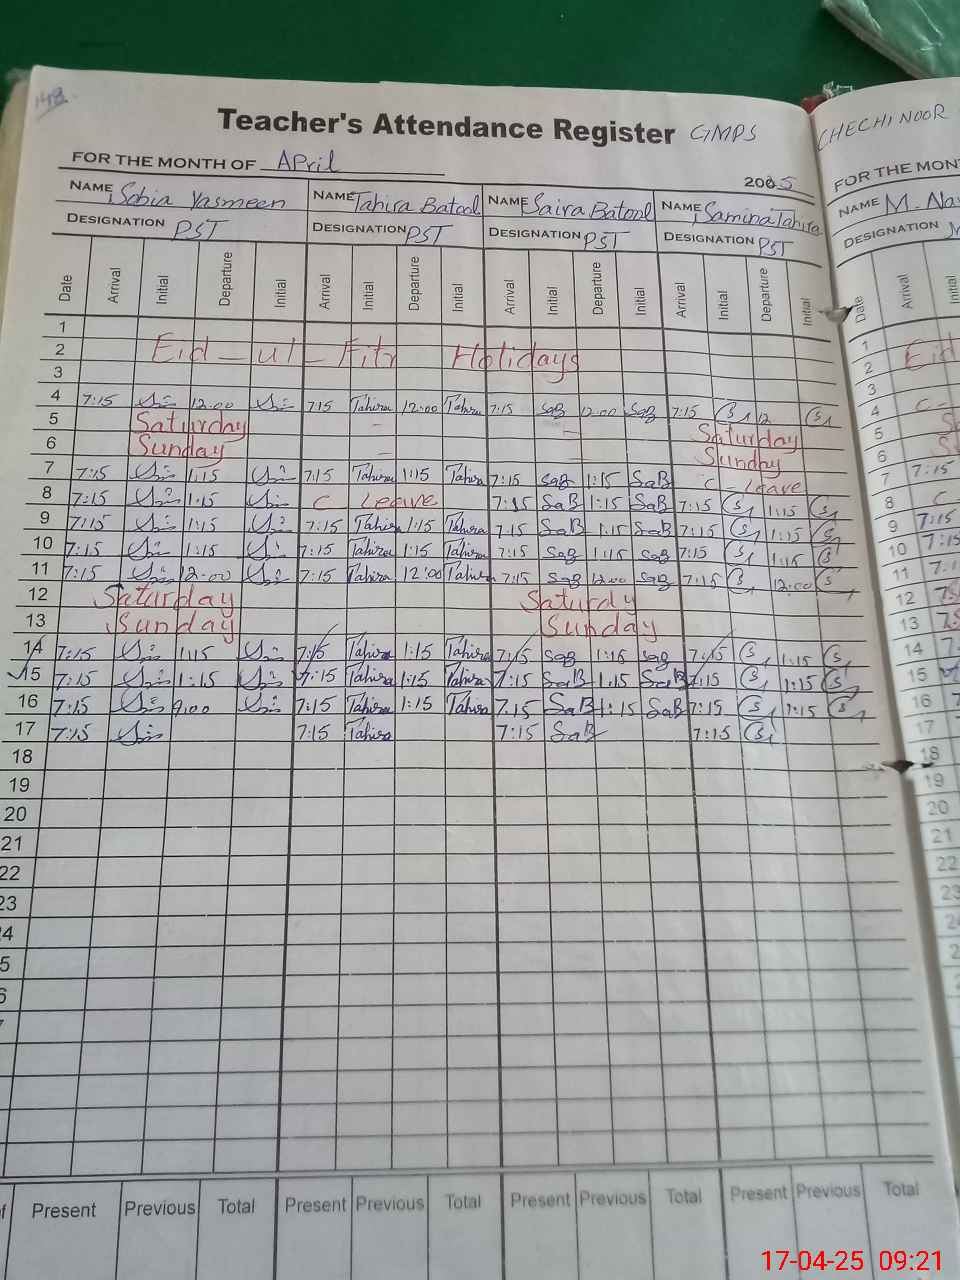 148
Teacher's Attendance Register GMPS
FOR THE MONTH OF April
2005
NAME Sobia Yasmeen NAME Tahira Batool NAME Saira Batool NAME Samina Tahira
DESIGNATION PST DESIGNATION PST DESIGNATION PST DESIGNATION PST
Date Arrival Initial Departure Initial Arrival Initial Departure Initial Arrival Initial Departure Initial Arrival Initial Departure Initial
1
2 Eid - ul - Fitr Holidays
3
4 7:15 12:00 7:15 Tahira 12:00 Tahira 7:15 SaB 12:00 SaB 7:15 12
5 Saturday Saturday
6 Sunday Sunday
7 7:15 1:15 7:15 Tahira 1:15 Tahira 7:15 SaB 1:15 SaB C - Leave
8 7:15 1:15 C Leave 7:15 SaB 1:15 SaB 7:15 1:15
9 7:15 1:15 7:15 Tahira 1:15 Tahira 7:15 SaB 1:15 SaB 7:15 1:15
10 7:15 1:15 7:15 Tahira 1:15 Tahira 7:15 SaB 1:15 SaB 7:15 1:15
11 7:15 12:00 7:15 Tahira 12:00 Tahira 7:15 SaB 12:00 SaB 7:15 12:00
12 Saturday Saturdy
13 Sunday Sunday
14 7:15 1:15 7:15 Tahira 1:15 Tahira 7:15 SaB 1:15 SaB 7:15 1:15
15 7:15 1:15 7:15 Tahira 1:15 Tahira 7:15 SaB 1:15 SaB 7:15 1:15
16 7:15 9:00 7:15 Tahira 1:15 Tahira 7:15 SaB 1:15 SaB 7:15 1:15
17 7:15 7:15 Tahira 7:15 SaB 7:15
18
19
20
21
22
23
Present Previous Total Present Previous Total Present Previous Total Present Previous Total
CHECHI NOOR
FOR THE
NAME M.
DESIGNATION
Date Arrival Initial
1
2 Eid
3
4
5
6
7 7:15
8 C
9 7:15
10 7:15
11
12
13
14
15
16
17
18
19
20
21
22
17-04-25 09:21